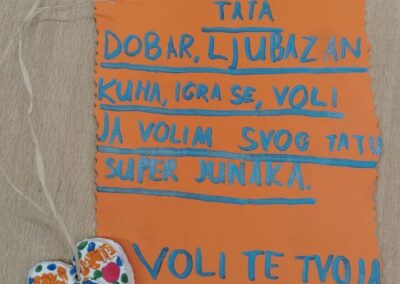 TATA
DOBAR, LJUBAZAN
KUHA, IGRA SE, VOLI
JA VOLIM SVOG TATU
SUPER JUNAKA.
VOLI TE TVOJA